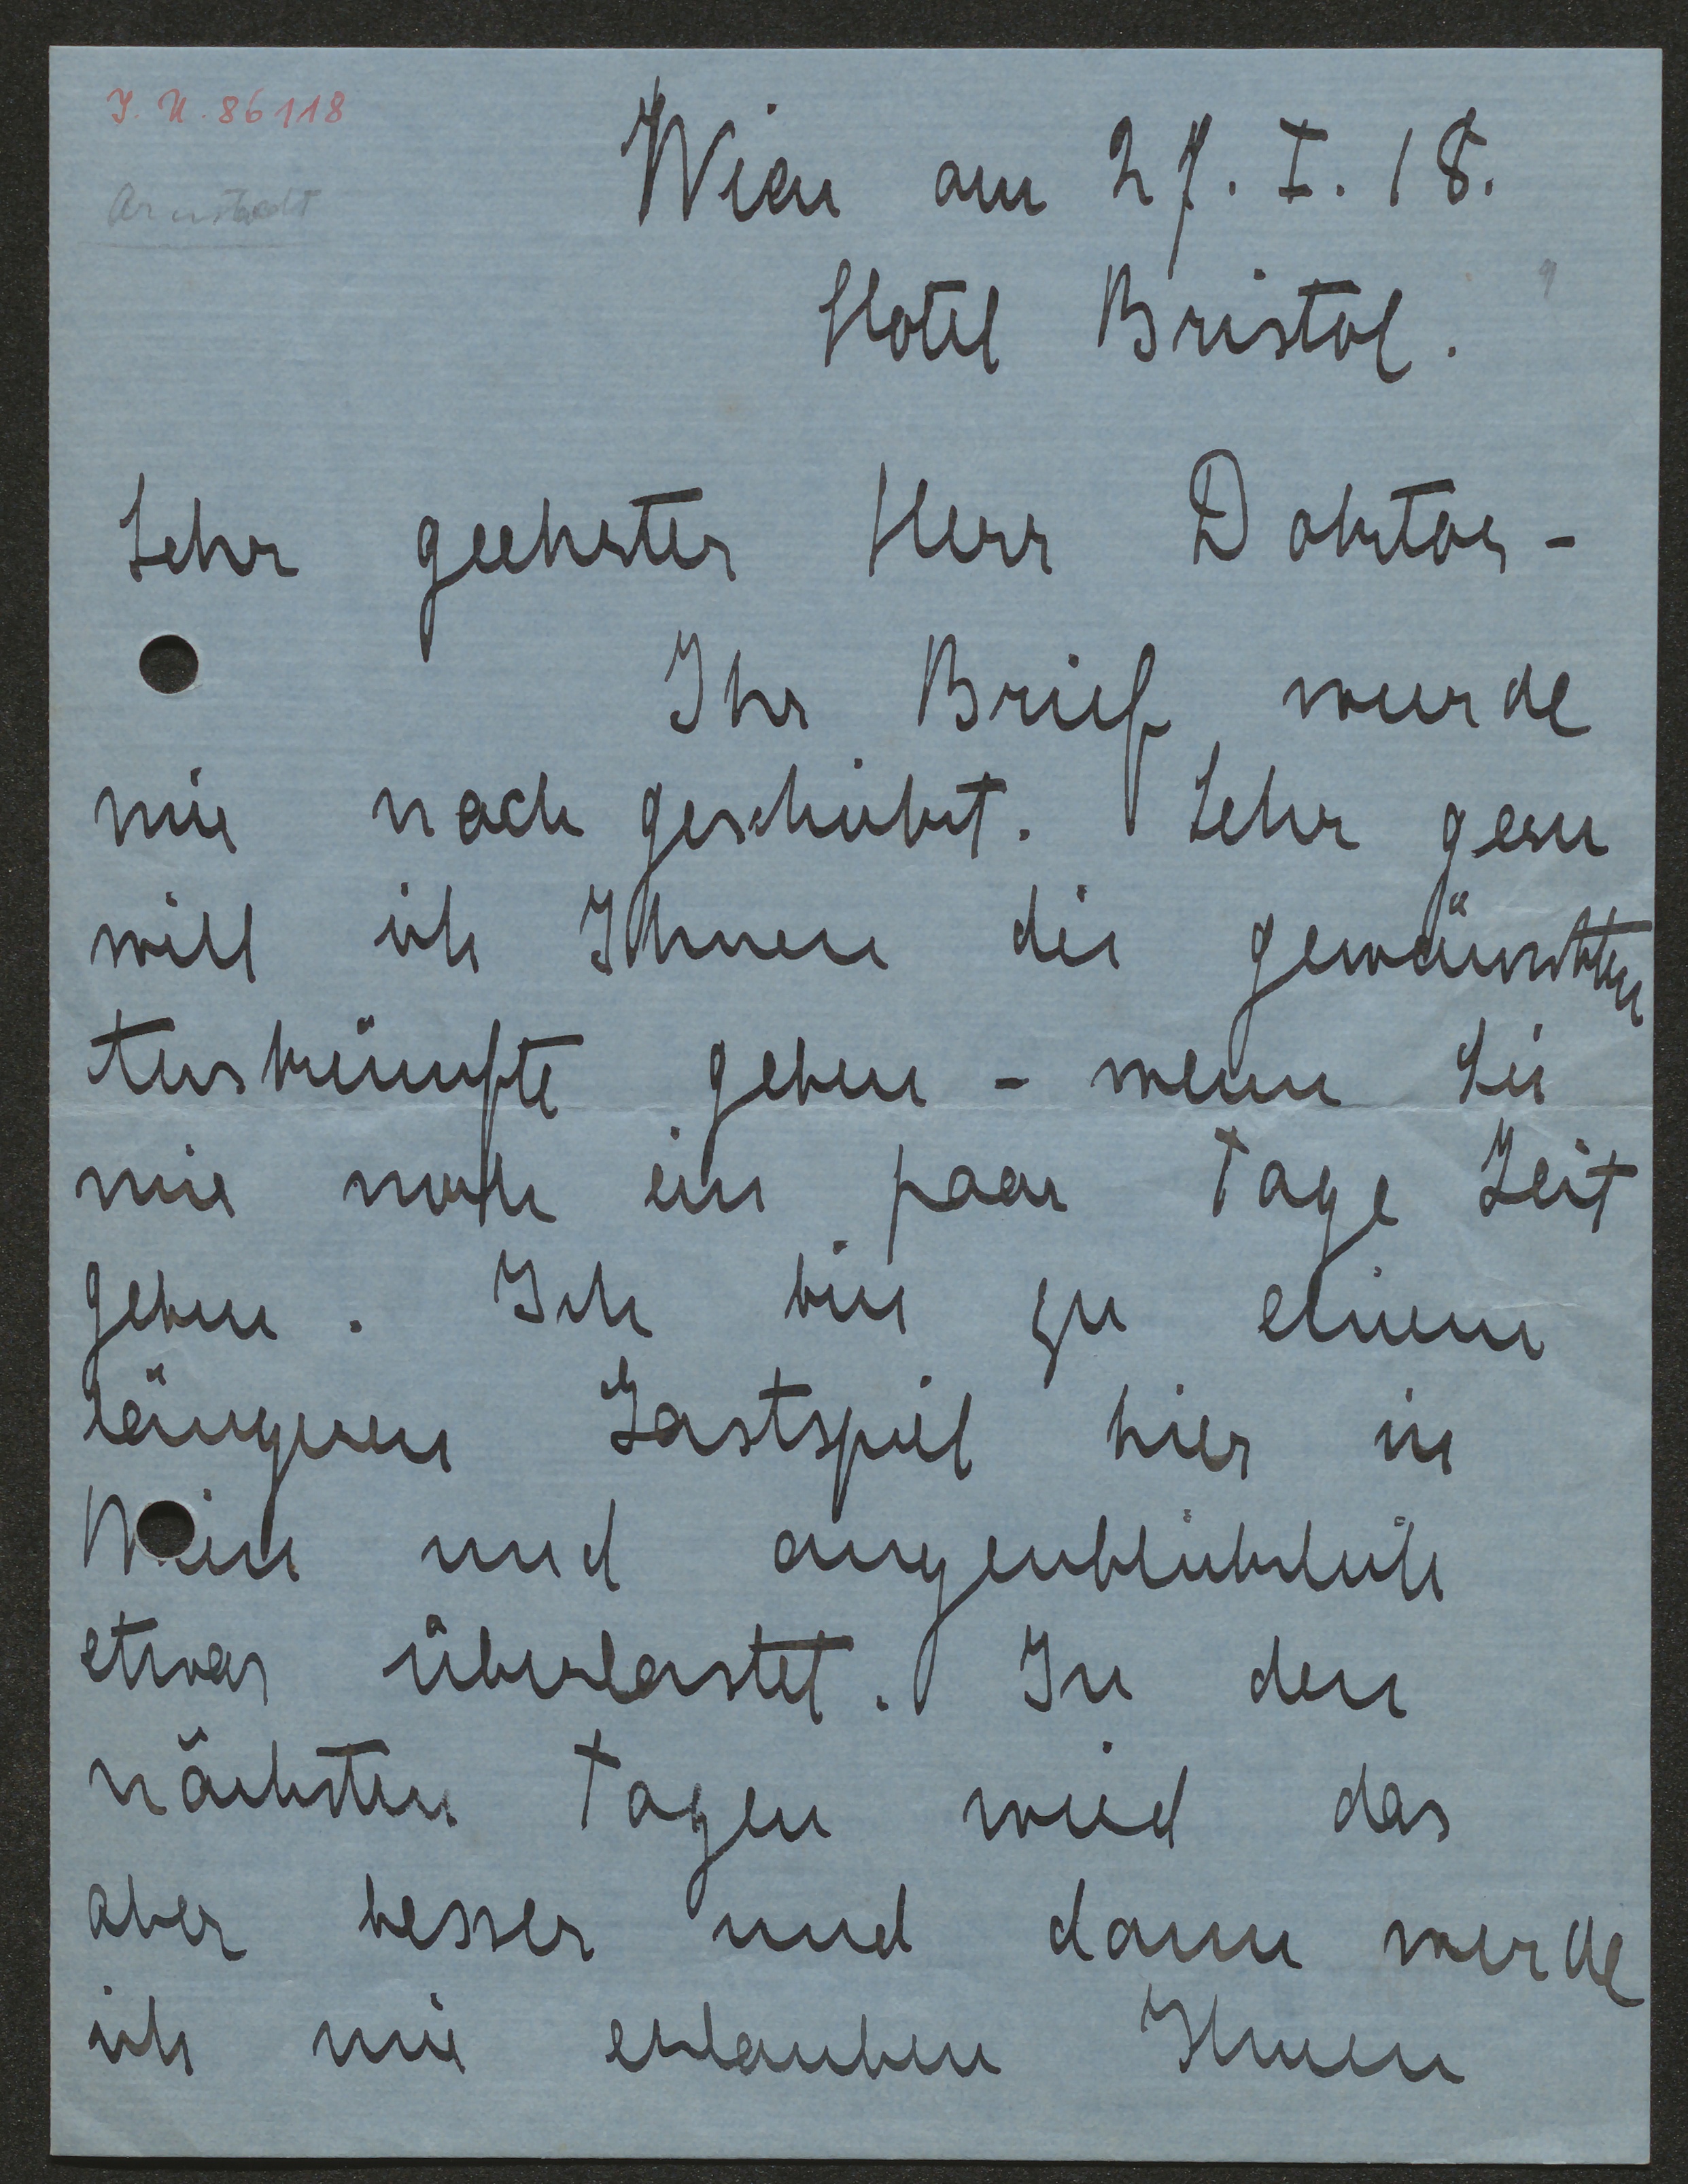 I. N. 86118
Arnstaedt
Wien am 27. I. 18.
Hotel Bristol.
Sehr geehrter Herr Doktor -
Ihr Brief wurde
mir nach geschickt. Sehr gern
will ich Ihnen die gewünschten
Auskünfte geben - wenn Sie
mir noch ein paar Tage Zeit
geben. Ich bin zu einem
längeren Gastspiel hier in
Wien und augenblicklich
etwas überlastet. In den
nächsten Tagen wird das
aber besser und dann werde
ich mir erlauben Ihnen